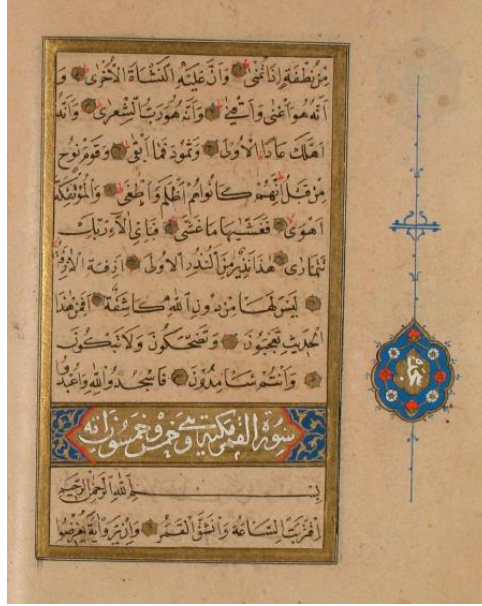 مِنْ نُطْفَةٍ إِذَا تُمْنَىٰ وَأَنَّ عَلَيْهِ النَّشْأَةَ الْأُخْرَىٰ وَ
أَنَّهُ هُوَ أَغْنَىٰ وَأَقْنَىٰ وَأَنَّهُ هُوَ رَبُّ الشِّعْرَىٰ وَأَنَّهُ
أَهْلَكَ عَادًا الْأُولَىٰ وَثَمُودَ فَمَا أَبْقَىٰ وَقَوْمَ نُوحٍ
مِنْ قَبْلُ إِنَّهُمْ كَانُوا هُمْ أَظْلَمَ وَأَطْغَىٰ وَالْمُؤْتَفِكَةَ
أَهْوَىٰ فَغَشَّيهَا مَا غَشَّىٰ فَبِأَيِّ آلَاءِ رَبِّكَ
تَتَمَارَىٰ هَذَا نَذِيرٌ مِنَ النُّذُرِ الْأُولَىٰ أَزِفَةِ الْآزِفَةُ
لَيْسَ لَهَا مِنْ دُونِ اللَّهِ كَاشِفَةٌ أَفَمِنْ هَذَا
الْحَدِيثِ تَعْجَبُونَ وَتَضْحَكُونَ وَلَا تَبْكُونَ
وَأَنْتُمْ سَامِدُونَ فَاسْجُدُوا لِلَّهِ وَاعْبُدُوا
سورة القمر مكية وهي خمس وخمسون آية
بِسْمِ اللَّهِ الرَّحْمَٰنِ الرَّحِيمِ
اقْتَرَبَتِ السَّاعَةُ وَانْشَقَّ الْقَمَرُ وَإِنْ يَرَوْا آيَةً يُعْرِضُوا